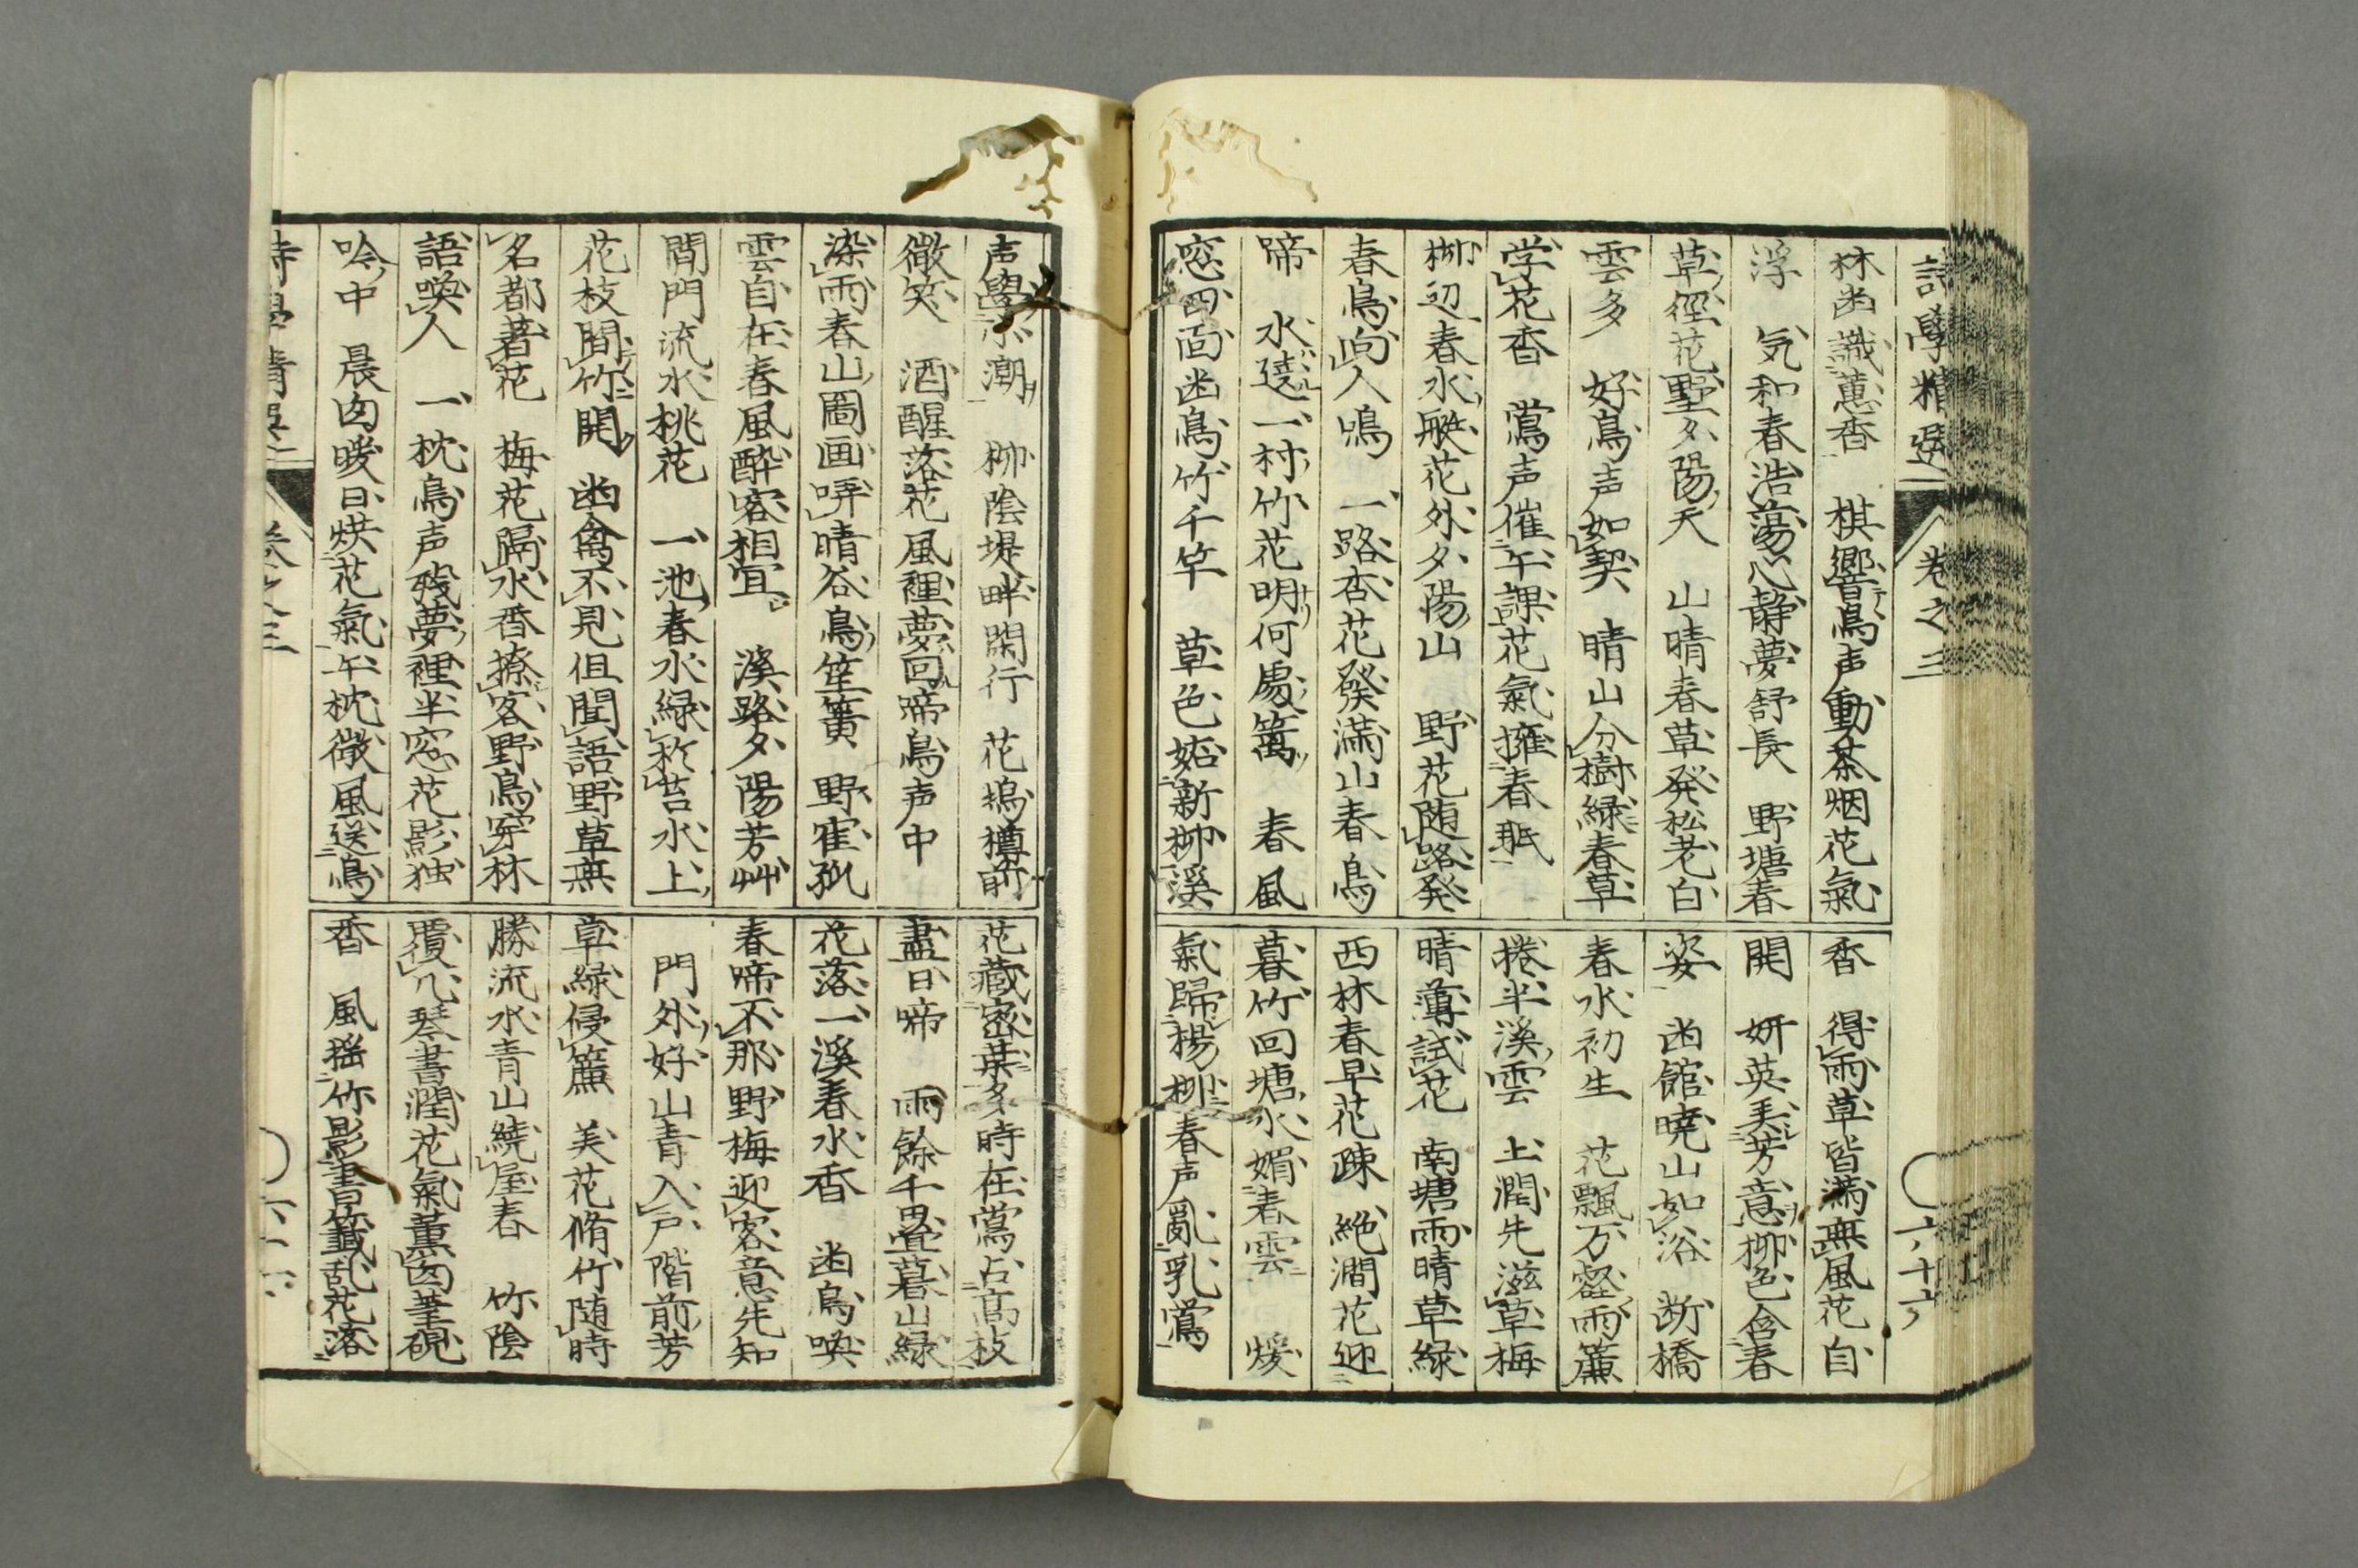 詩學精選 卷之三 六十六
林幽識蕙香 棋響鳥声動茶烟花氣
浮 気和春浩蕩心静夢舒長 野塘春
草径花墅夕陽天 山晴春草発松老白
雲多 好鳥声如契 晴山分樹緑春草
学花香 鶯声催午課花氣擁春眠
柳辺春水艇花外夕陽山 野花随路発
春鳥向人鳴 一路杏花發満山春鳥
啼 水遶一村竹花明何處篱 春風
窓四面幽鳥竹千竿 草色妬新柳溪
香 得雨草皆満無風花自
開 妍英美芳意柳色含春
姿 幽館暁山如浴 断橋
春水初生 花飄万壑雨簾
捲半溪雲 土潤先滋草梅
晴薄試花 南塘雨晴草緑
西林春早花疎 絶澗花迎
暮竹回塘水媚春雲 煖
氣歸楊柳春声亂乳鶯
声學水潮 柳陰堤畔閑行 花塢樽前
微笑 酒醒落花風裡夢回啼鳥声中
染雨春山圖画哢晴谷鳥笙簧 野寉孤
雲自在春風酔客相宜 溪路夕陽芳艸
間門流水桃花 一池春水緑於苔水上
花枝間竹開 幽禽不見但聞語野草無
名都著花 梅花隔水香撩客野鳥穿林
語喚人 一枕鳥声残夢裡半窓花影独
吟中 晨囱暖日烘花氣午枕微風送鳥
花藏密葉多時在鶯占高枝
盡日啼 雨餘千畳暮山緑
花落一溪春水香 幽鳥喚
春啼不那野梅迎客意先知
門外好山青入戸階前芳
草緑侵簾 美花脩竹随時
勝流水青山繞屋春 竹陰
覆几琴書潤花氣薫囱筆硯
香 風揺竹影書籤乱花落
卷之三